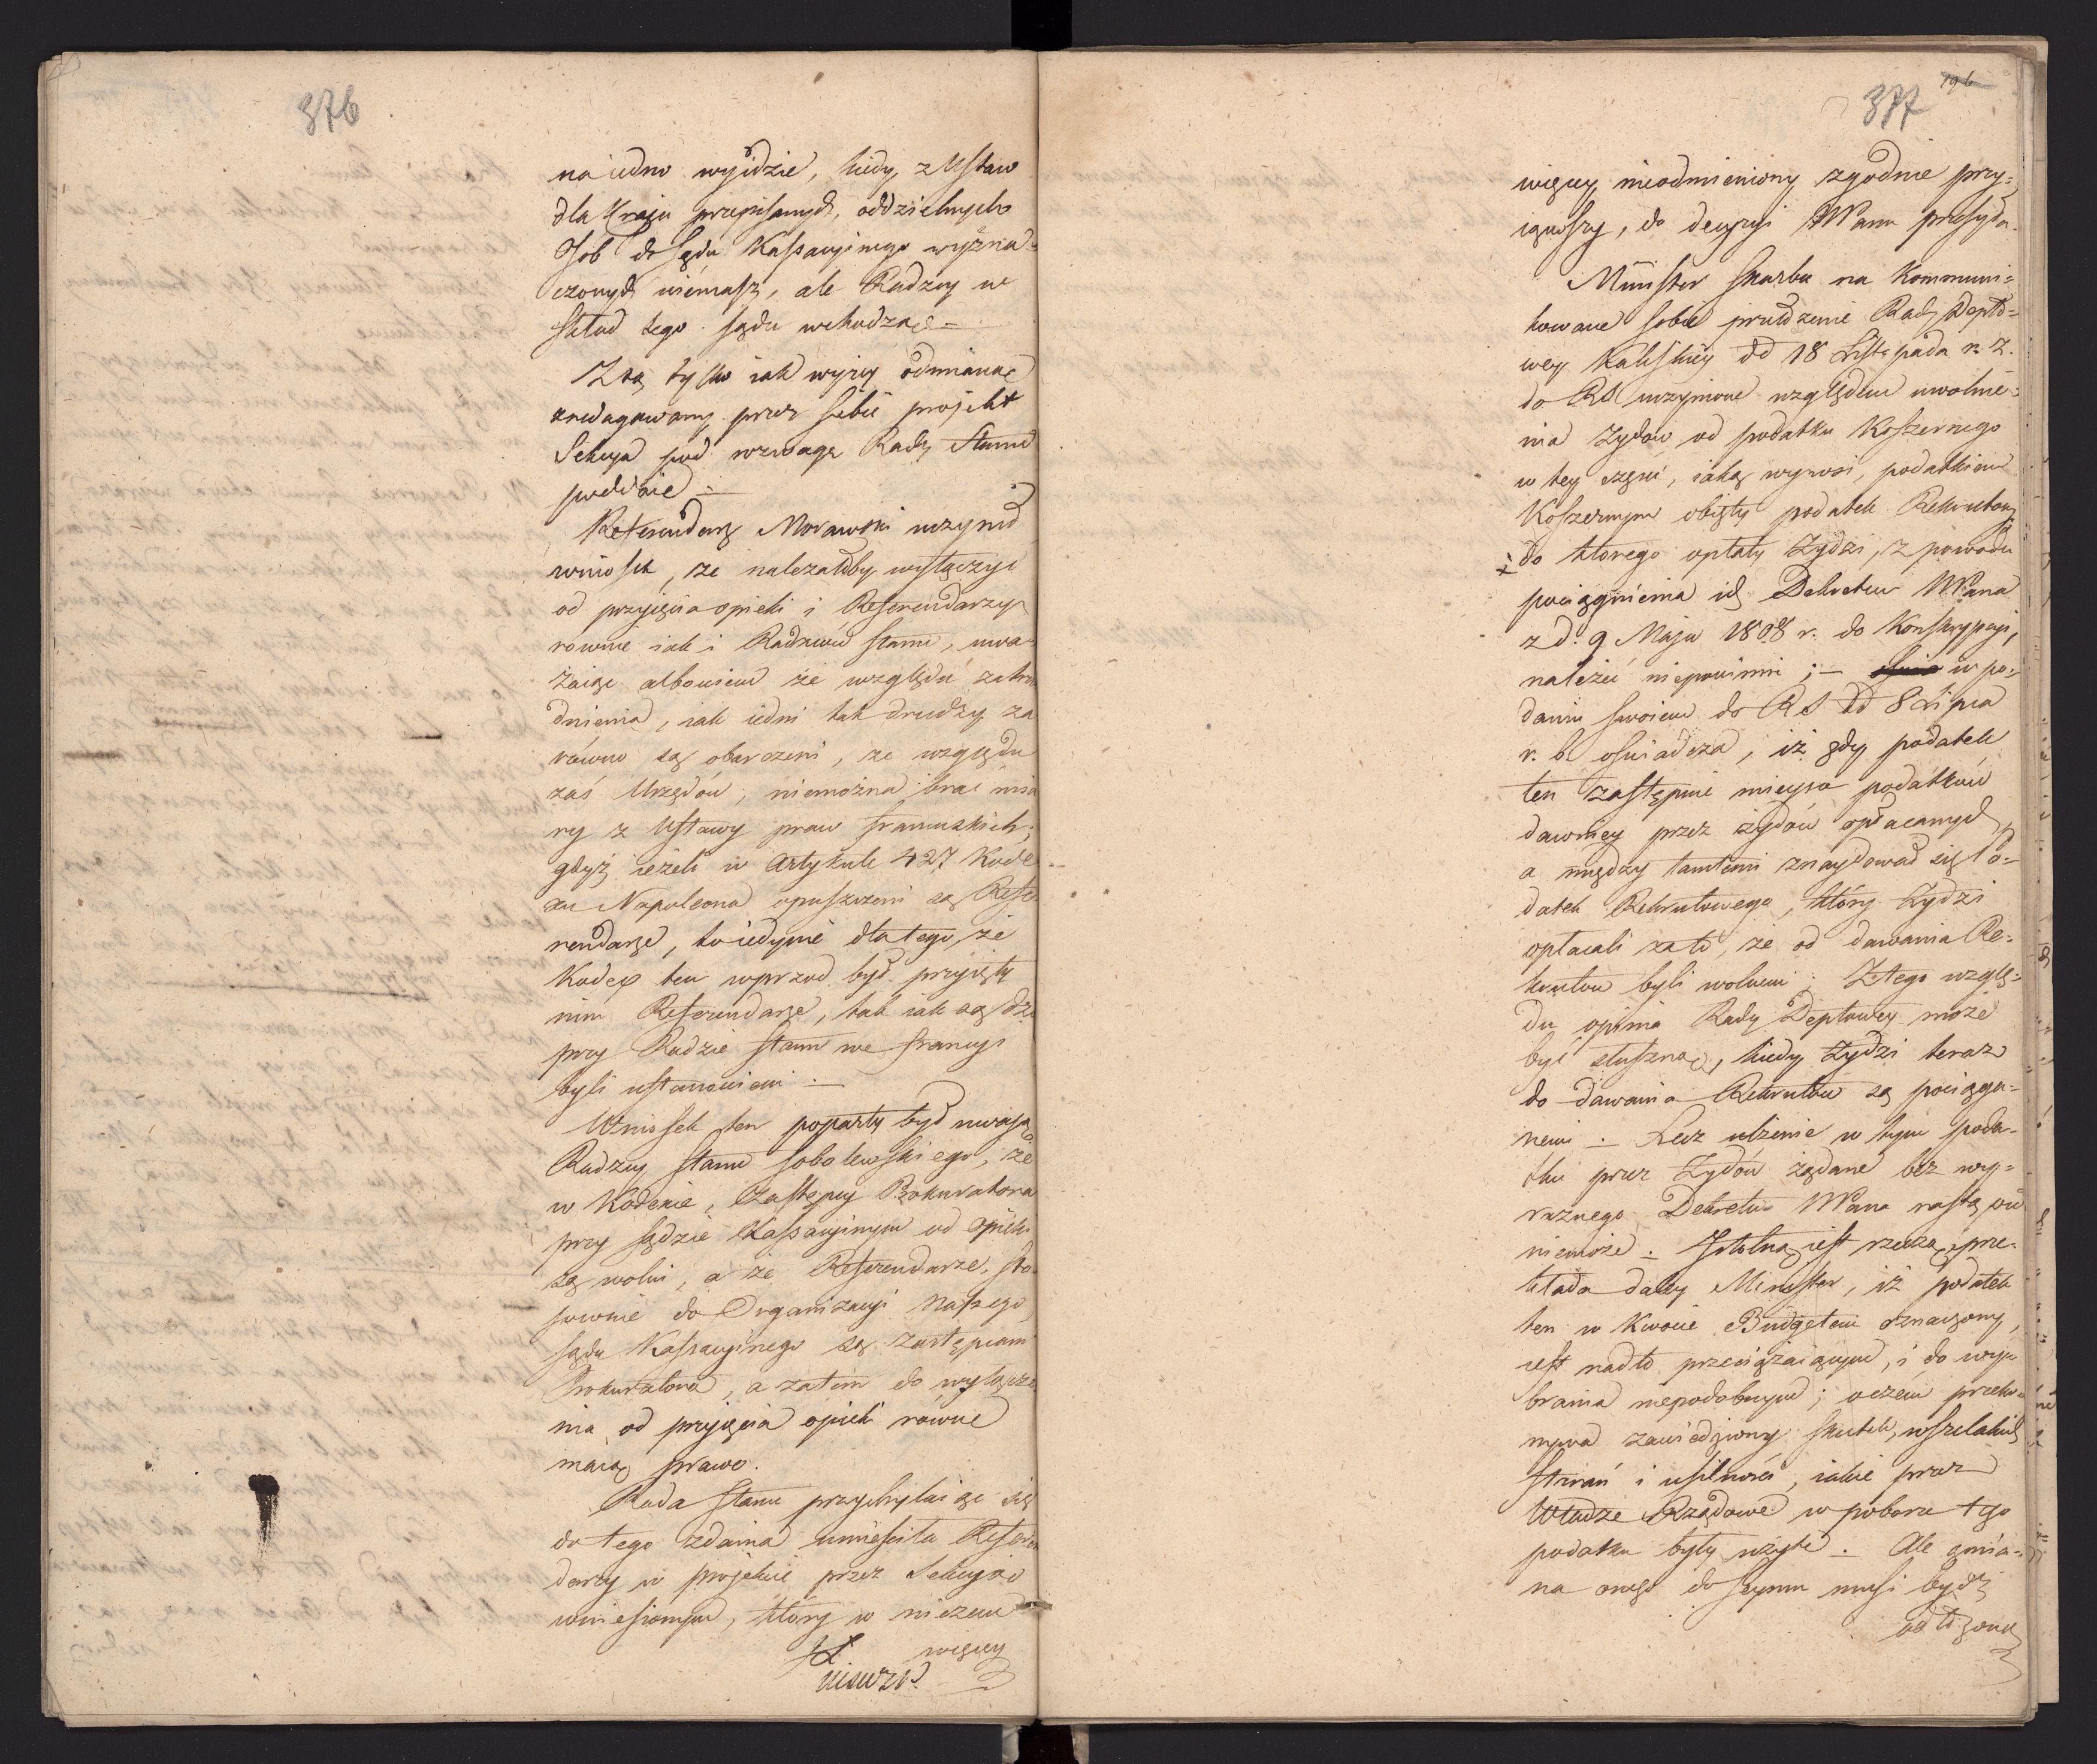 376
na iedno wyidzie, kiedy z Ustaw
dla Kraju przepisanych, oddzielnych
Osób do Sądu Kassacyinego wyzna-
czonych niemasz, ale Radzcy w
skład tego sądu wchodzą -
Z tą tylko iak wyżey odmianą
zredagowany przez siebie projekt
Sekcya pod rozwagę Rady Stanu
poddaie .—
Referendarz Morawski uczynił
wniosek, że należałoby wyłączyć
od przyięcia opieki i Referendarzy
rownie iak i Radzców stanu, uwa-
żaiąc albowiem że względu zatru
dnienia, iak iedni tak drudzy za
równo są obarczeni, ze względu
zaś Urzędów, niemożna brać mia
ry z Ustawy praw francuskich;
gdyż ieżeli w Artykule 427 Kode
xu Napoleona opuszczeni są Refe
rendarze, to iedynie dla tego, że
Kodex ten wprzod był przyięty
nim Referendarze, tak iak są dzi
przy Radzie stanu we francyi
byli ustanowieni .—
Wniosek ten poparty był uwagą
Radzcy stanu Sobolewskiego, że
w Kodexie, Zastępcy Prokuratora
przy sądzie Kassacyinym od opieki
są wolni, a że Referendarze, sto
sownie do Organizacyi naszego
sądu Kassacyinego są zastępcami
Prokuratora, a zatem do wyłącze
nia od przyięcia opieki równe
maią prawo.
Rada stanu przychylaiąc się
do tego zdania umieściła Referen
darzy w projekcie przez Sekcyą
wniesionym, który w niczem
więcey
377 196
więcey nieodmieniony zgodnie przy-
iąwszy, do decyzyi NPana przesyła.
Minister skarbu na kommuni-
kowane sobie przełożenie Rady Depto-
wey Kaliskiey dd 18 Listopada r. z.
do RS uczynione względem uwolnie-
nia Zydow od podatku Koszernego
w tey części, iaką wynosi, podatkiem
Koszernym obięty podatek Rekrutowy
do ktorego opłaty Zydzi, z powodu
pociągnienia ich Dekretem NPana
z d. 9 Maja 1808 r. do Konskrypcyi,
należeć niepowinni ; — w po-
daniu swoiem do RS dd 8 Lipca
r. b. oświadcza, iż gdy podatek
ten zastępuie mieysce podatków
dawniey przez żydów opłacanych,
a między tamtemi znaydował się Po-
datek Rekrutowego, który Zydzi
opłacali za to, że od dawania Re-
krutów byli wolnemi ; Z tego wzglę-
du opinia Rady Deptowey może
być słuszną, kiedy Zydzi teraz
do dawania Rekrutów są pociąga-
nemi .— Lecz ulżenie w tym poda-
tku przez Zydów żądane bez wy-
raznego Dekretu NPana nastąpić
niemoże . Istotną iest rzeczą, prze-
kłada daley Minister, iż podatek
ten w Kwocie Budgetem oznaczony,
iest nadto przeciążaiącym, i do wy-
brania niepodobnym ; o czem przeko-
nywa zawiedziony skutek, wszelakich
starań i usilności, iakie przez
Władze Rządowe w poborze tego
podatku były użyte .— Ale zmia-
na onego do seymu musi bydź
odłożoną